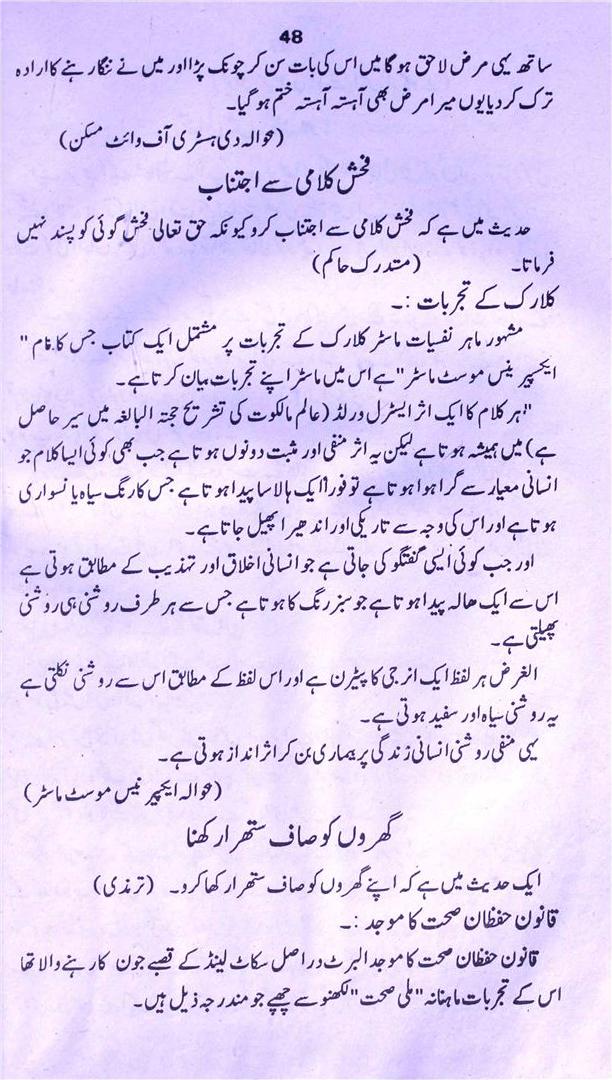 48
ساتھ یہی مرض لاحق ہوگا میں اس کی بات سن کر چونک پڑا اور میں نے ننگا رہنے کا ارادہ
ترک کر دیا یوں میرا مرض بھی آہستہ آہستہ ختم ہوگیا۔
(حوالہ دی ہسٹری آف وائٹ مسکن)
فحش کلامی سے اجتناب
حدیث میں ہے کہ فحش کلامی سے اجتناب کرو کیونکہ حق تعالی فحش گوئی کو پسند نہیں
فرماتا۔ (متدرک حاکم)
کلارک کے تجربات :۔
مشہور ماہر نفسیات ماسٹر کلارک کے تجربات پر مشتمل ایک کتاب جس کا نام "
ایکسپیرینس موسٹ ماسٹر" ہے اس میں ماسٹر اپنے تجربات بیان کرتا ہے۔
"ہر کلام کا ایک اثر ایسٹرل ورلڈ (عالم مالکوت کی تشریح حجتہ البالغہ میں سیر حاصل
ہے) میں ہمیشہ ہوتا ہے لیکن یہ اثر منفی اور مثبت دونوں ہوتا ہے جب بھی کوئی ایسا کلام جو
انسانی معیار سے گرا ہوا ہوتا ہے تو فوراً ایک ہالا سا پیدا ہوتا ہے جس کا رنگ سیاہ یا نسواری
ہوتا ہے اور اس کی وجہ سے تاریکی اور اندھیرا پھیل جاتا ہے۔
اور جب کوئی ایسی گفتگو کی جاتی ہے جو انسانی اخلاق اور تہذیب کے مطابق ہوتی ہے
اس سے ایک ھالہ پیدا ہوتا ہے جو سبز رنگ کا ہوتا ہے جس سے ہر طرف روشنی ہی روشنی
پھیلتی ہے۔
الغرض ہر لفظ ایک انرجی کا پیٹرن ہے اور اس لفظ کے مطابق اس سے روشنی نکلتی ہے
یہ روشنی سیاہ اور سفید ہوتی ہے۔
یہی منفی روشنی انسانی زندگی پر بیماری بن کر اثر انداز ہوتی ہے۔
(حوالہ ایکپیرنیس موسٹ ماسٹر)
گھروں کو صاف ستھرا رکھنا
ایک حدیث میں ہے کہ اپنے گھروں کو صاف ستھرا رکھا کرو۔ (ترمذی)
قانون حفظان صحت کا موجد :۔
قانون حفظان صحت کا موجد البرٹ دراصل سکاٹ لینڈ کے قصبے جون کا رہنے والا تھا
اس کے تجربات ماہنانہ "ملی صحت" لکھنو سے چھپے جو مندرجہ ذیل ہیں۔